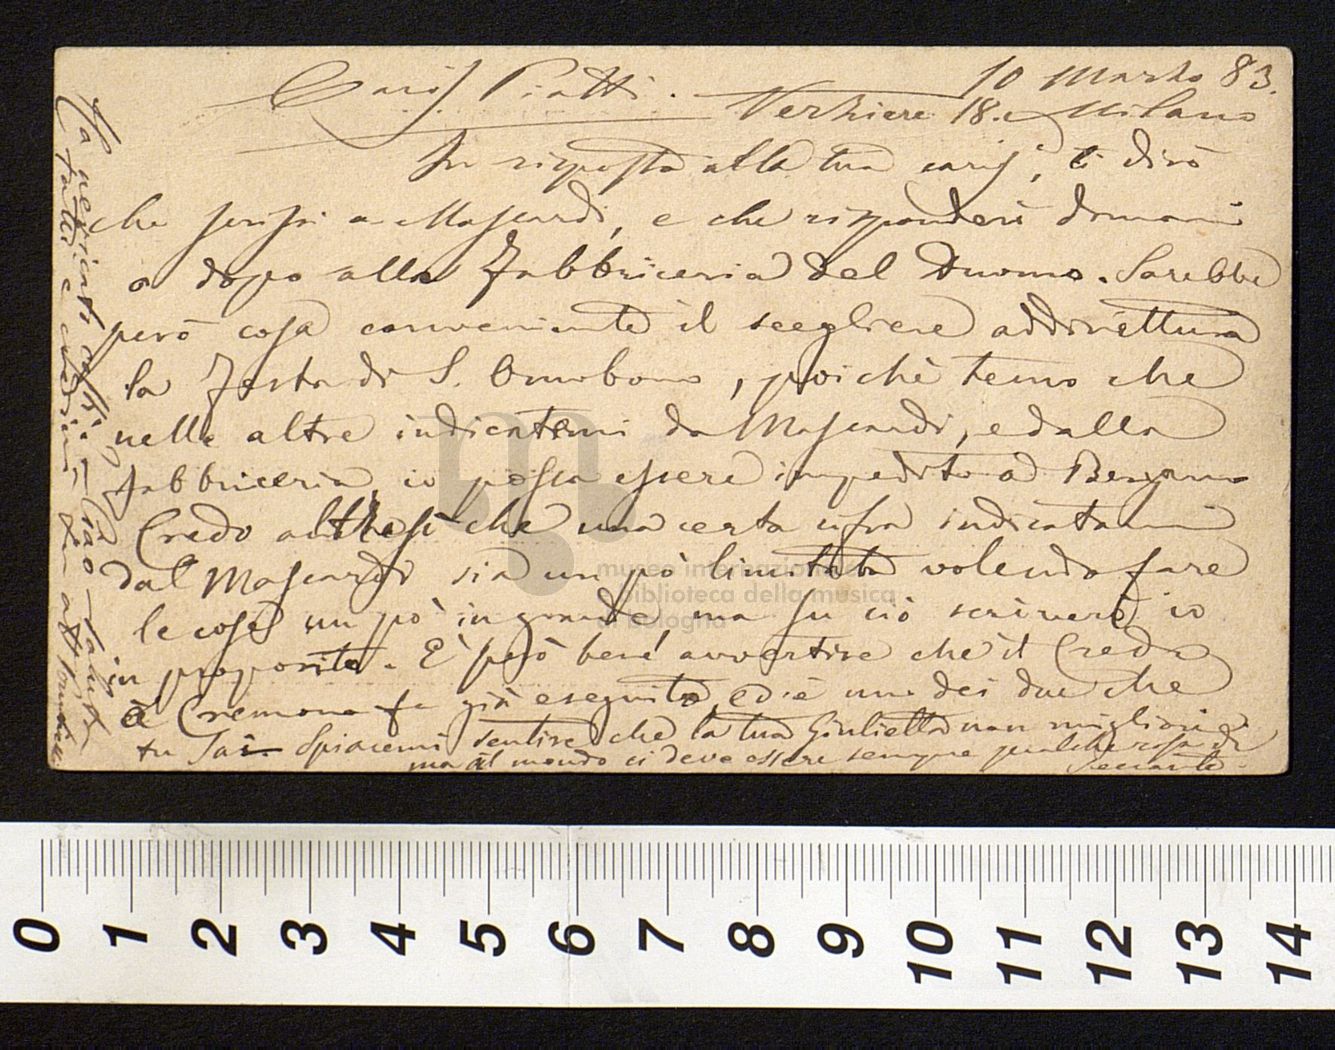 10 Marzo 83.
Cariss. Piatti. Verziere 18. Milano
In risposta alla tua cariss.a, ti dirò
che scrissi a Mascardi, e che risponderò domani
o dopo alla Fabbriceria del Duomo. Sarebbe
però cosa conveniente il scegliere addirittura
la Festa di S. Omobono, poichè temo che
nelle altre indicatemi da Mascardi, e dalla
Fabbriceria io possa essere impedito a Bergamo
Credo altresì che una certa cifra indicatami
dal Mascardi sia un pò limitata volendo fare
le cose un pò in grande, ma su ciò scriverò io
in proposito. È però bene avvertire che il Credo
a Cremona fu già eseguito, ed è uno dei due che
tu sai Spiacemi sentire che la tua Giulietta non migliori
ma al mondo ci deve essere sempre qualche cosa di
seccante.
Ciao Saluta
tutti e credimi
museo internazionale
e biblioteca della musica
di bologna
0 1 2 3 4 5 6 7 8 9 10 11 12 13 14